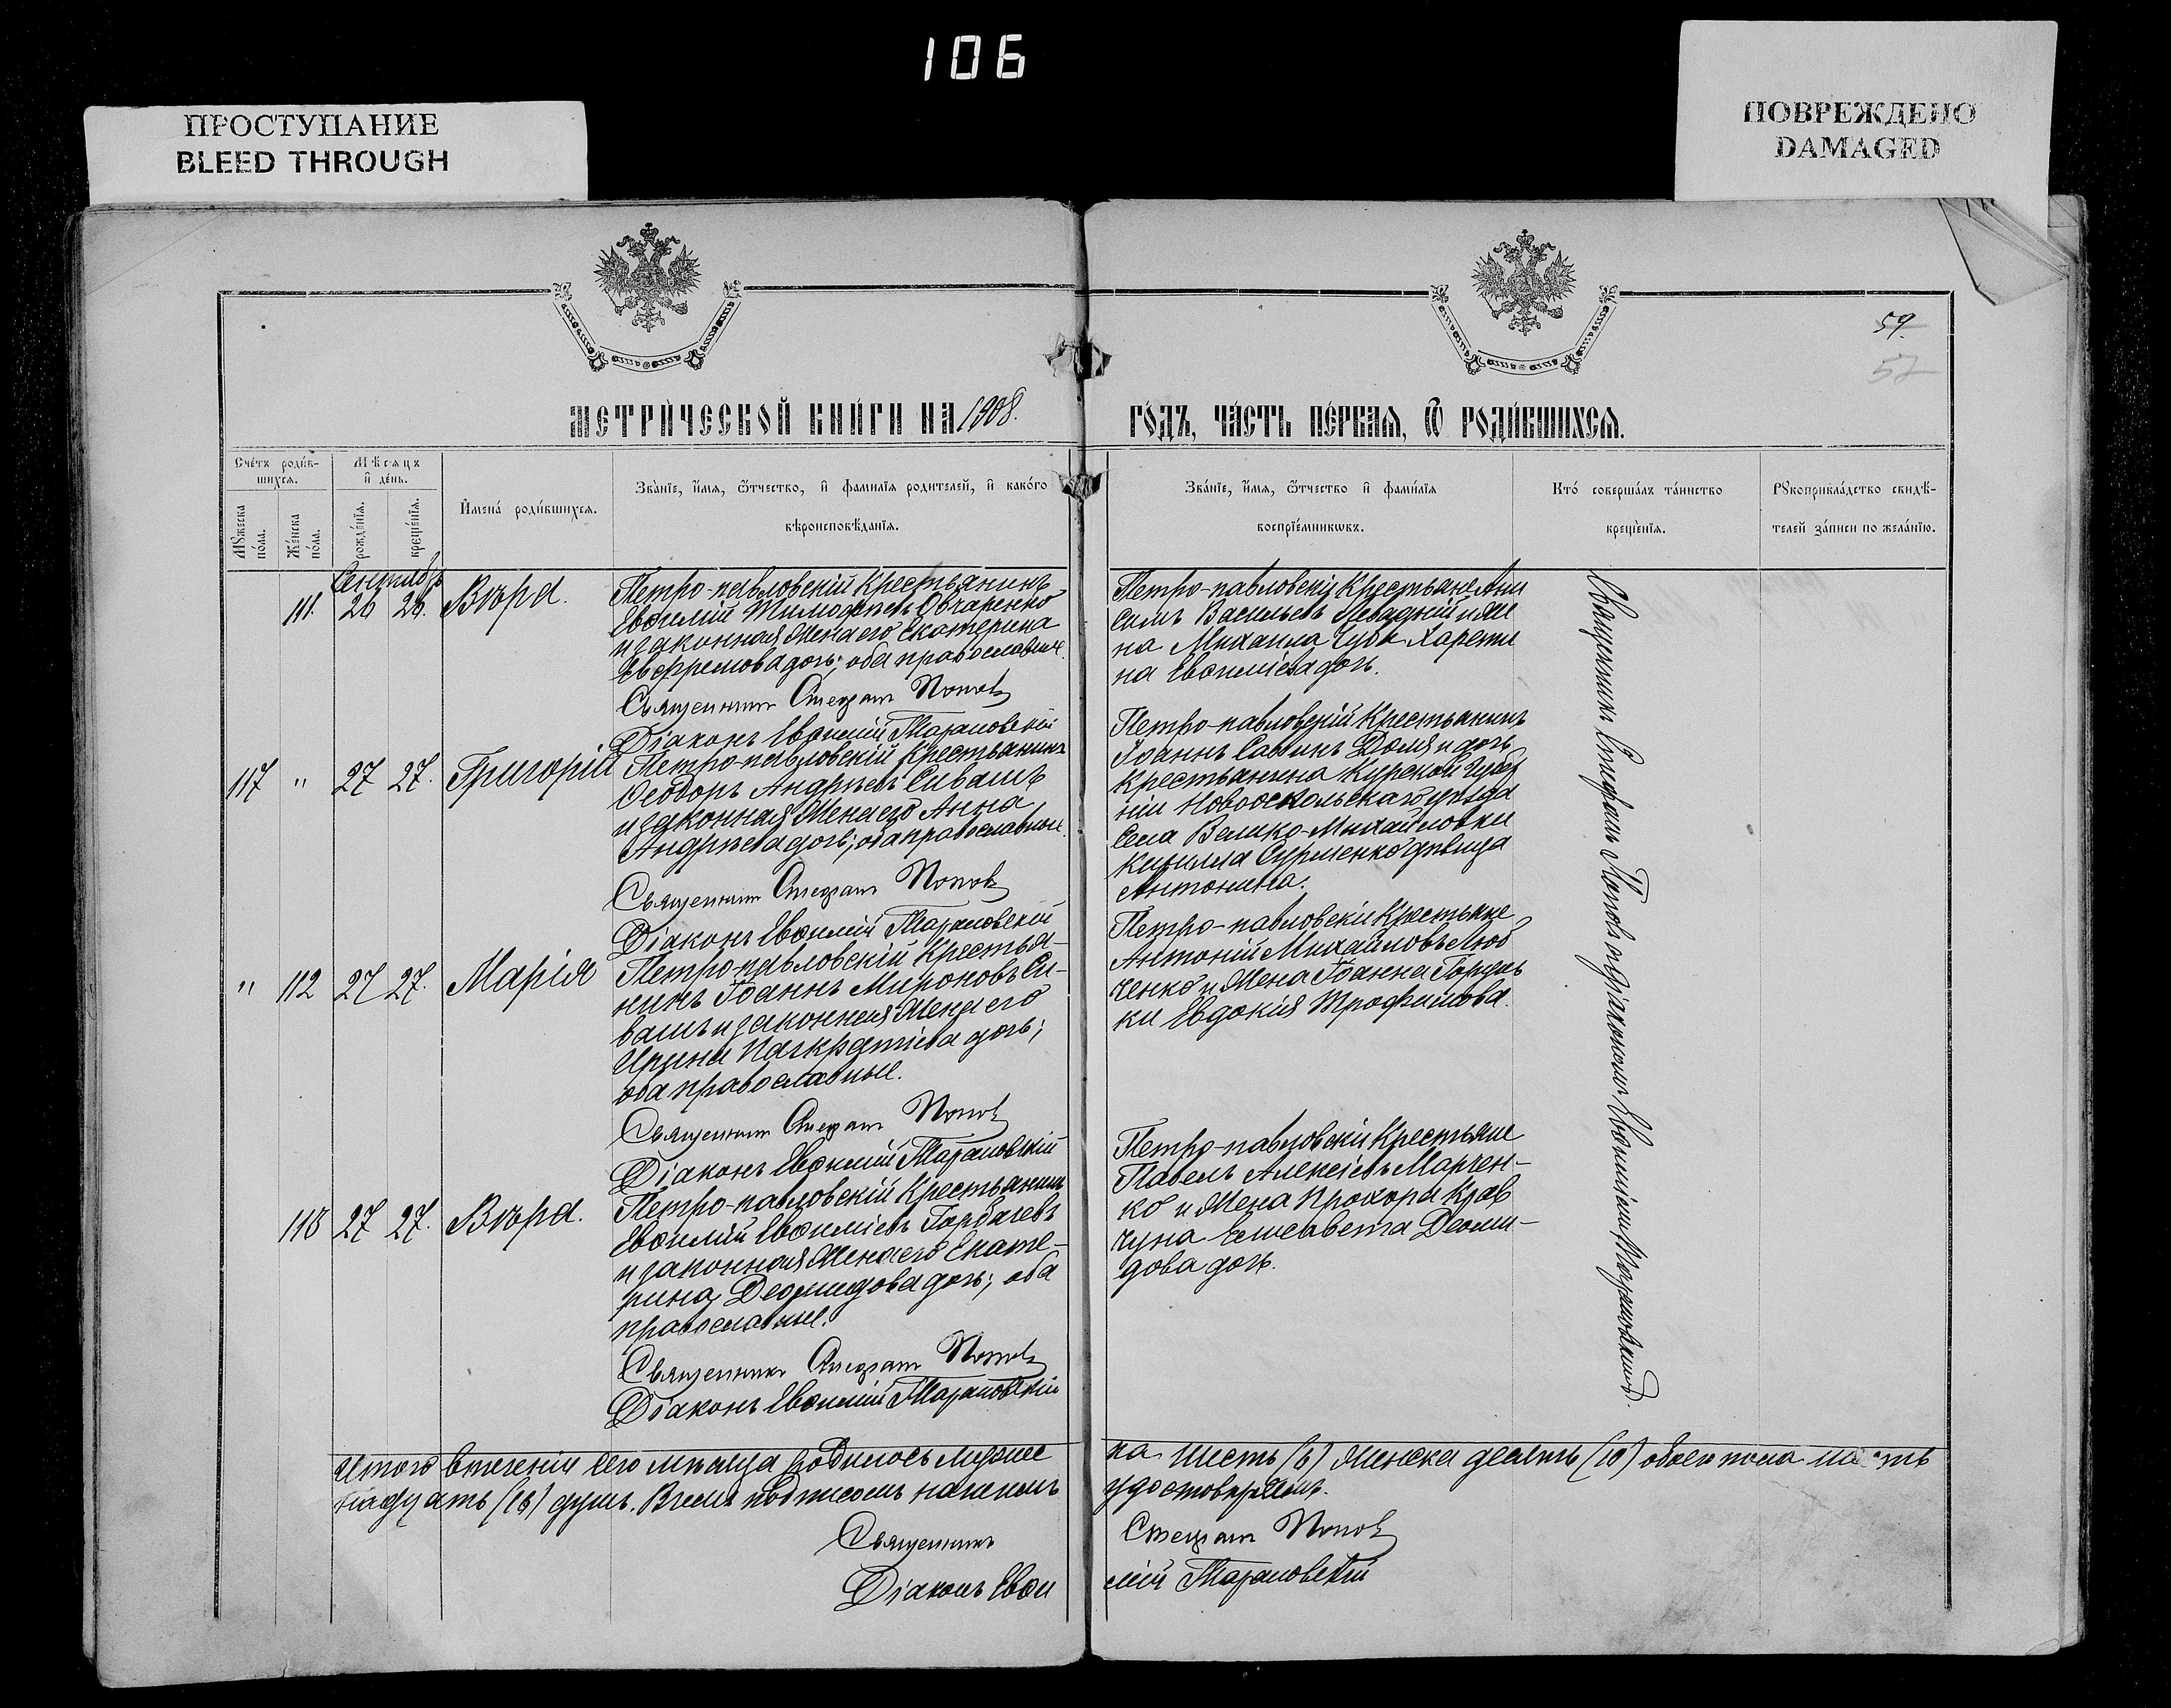 106
ПРОСТУПАНИЕ
BLEED THROUGH
ПОВРЕЖДЕНО
DAMAGED
59.
57
МЕТРИ́ЧЕСКОЙ КНИ́ГИ НА 1908.
ГО́ДЪ, ЧА́СТЬ ПЕ́РВАѦ, Ѿ РОДИ́ВШИХСѦ.
Сче́тъ роди́в-
шихсѧ.
Мѣсѧцъ
и҆ де́нь.
Мꙋ́жеска
по́ла.
Же́нска
по́ла.
рожде́нїѧ.
креще́нїѧ.
И҆мена̀ роди́вшихсѧ.
Зва́нїе, и҆́мѧ, ѻ҆́тчество, и҆ фами́лїѧ роди́телей, и҆ како́гѡ
вѣроисповѣ́данїѧ.
Зва́нїе, и҆́мѧ, ѻ҆́тчество и҆ фами́лїѧ
воспрїе́мникѡвъ.
Кто̀ соверша́лъ та́инство
креще́нїѧ.
Рꙋкоприкла́дство свидѣ́-
телей за́писи по жела́нїю.
Сентябрь
111. 26 26. Вѣра.
Петро-павловскій Крестьянинъ
Евѳимій Тимоѳеевъ Овчаренко
и законная Жена его Екатерина
Евфремова дочь; оба православные.
Священникъ Стефанъ Поповъ
Діаконъ Евѳимій Тарановскій
Петро-павловскіи Крестьяне Ани
симъ Васильевъ и же
на Михаила Губы Харети
на Евѳиміева дочь.
117 " 27 27. Григорій
Петро-павловскій Крестьянинъ
Ѳеодоръ Андреевъ Сивашъ
и законная Жена его Анна
Андреева дочь; оба православные.
Священникъ Стефанъ Поповъ
Діаконъ Евѳимій Тарановскій
Петро-павловскій Крестьянинъ
Іоаннъ Саввинъ Доля и дочь
Крестьянина Курской Губер
ніи Новооскольскаго уѣзда
Села Велико-Михайловки
Кирилла Сурменко дѣвица
Антонина.
" 112 27 27. Марія
Петро-павловскій Крестья-
нинъ Іоаннъ Мироновъ Си-
вашъ и законная Жена его
Ирина Панкратіева дочь;
оба православные.
Священникъ Стефанъ Поповъ
Діаконъ Евѳимій Тарановскій
Петро-павловскіи Крестьяне
Антоній Михайловъ Люб
ченко и Жена Іоанна Гордѣ
ки Евдокія Трофимова.
118 27 27. Вѣра.
Петро-павловскій Крестьянинъ
Евѳимій Евѳиміевъ Горбачевъ
и законная Жена его Екате-
рина Деомидова дочь; оба
православные.
Священникъ Стефанъ Поповъ
Діаконъ Евѳимій Тарановскій
Петро-павловскіи Крестьяне
Павелъ Алексіевъ Марчен-
ко и Жена Прохора Крав
чуна Елисавета Деоми-
дова дочь.
Священникъ Стефанъ Поповъ съ діакономъ Евѳиміемъ Тарановскимъ.
Итого втеченіи сего мѣсяца родилось мужес
ка шесть (6) Женска десять (10) обоего пола шесть
надцать (16) душъ. Въ чемъ подписомъ нашимъ
удостовѣряемъ.
Священникъ
Стефанъ Поповъ
Діаконъ Евѳи
мій Тарановскій